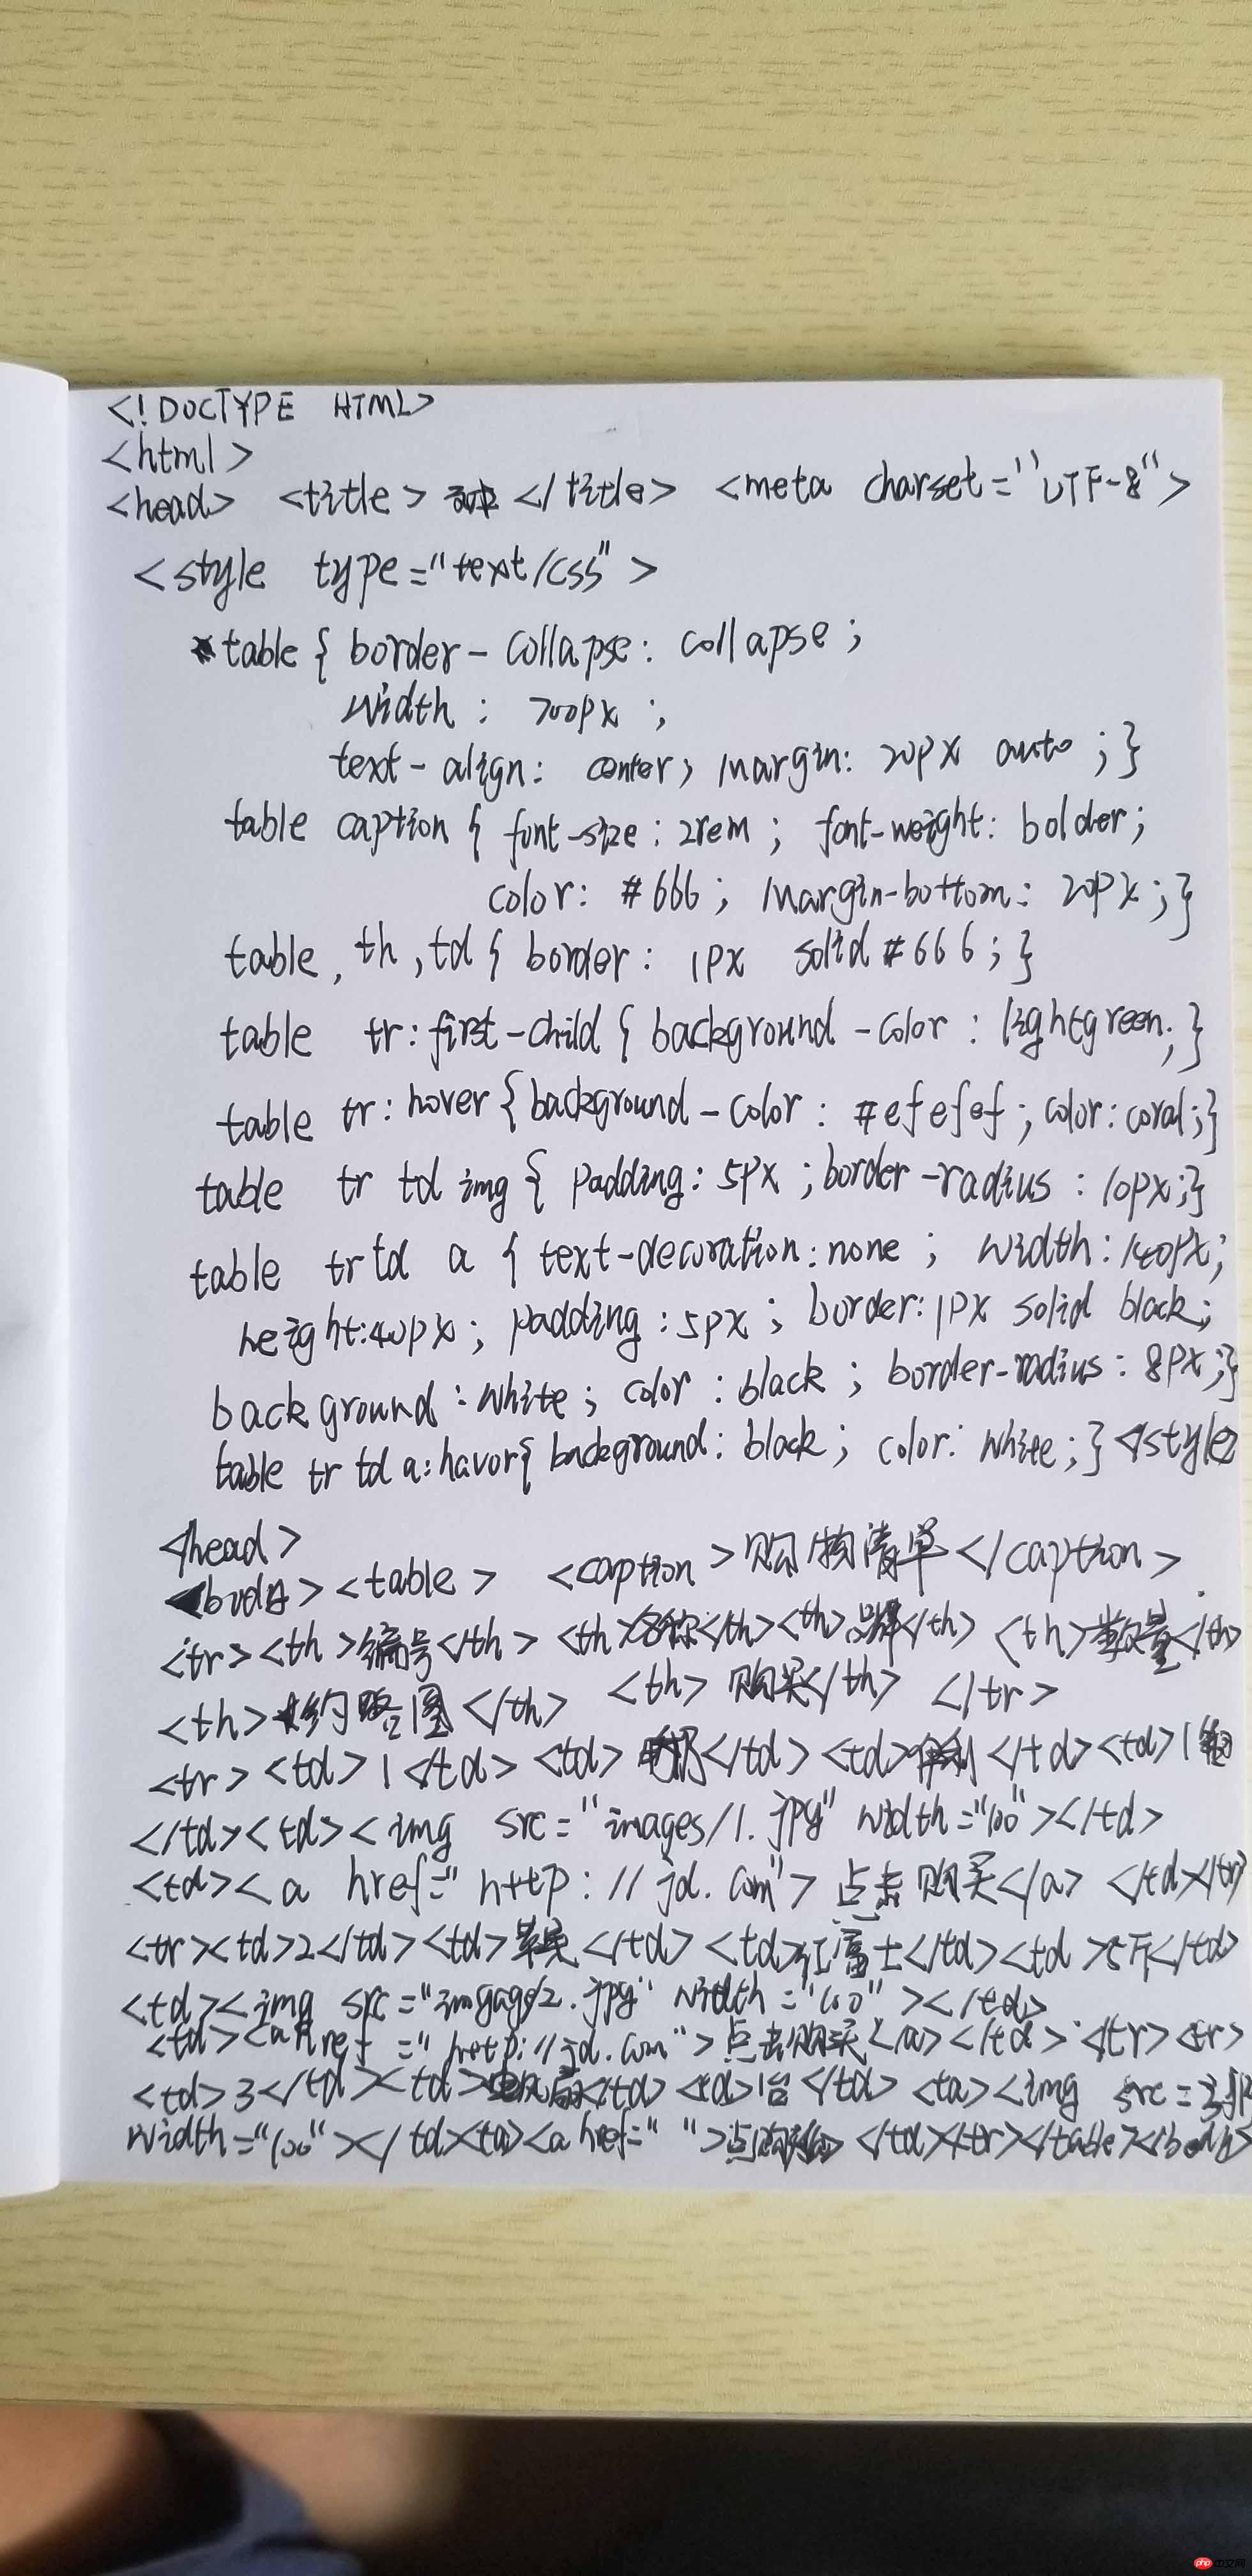 <!DOCTYPE HTML>
<html>
<head> <title> </title> <meta charset="UTF-8">
<style type="text/css">
table { border-collapse: collapse;
width: 700px ;
text-align: center; margin: 20px auto ; }
table caption { font-size: 2rem ; font-weight: bolder;
color: #666 ; margin-bottom: 20px ; }
table, th, td { border: 1px solid #666; }
table tr:first-child { background-color : lightgreen; }
table tr:hover { background-color : #efefef ; color: coral; }
table tr td img { padding: 5px ; border-radius : 10px; }
table tr td a { text-decoration: none ; width: 140px;
height:40px ; padding : 5px ; border: 1px solid black;
background : white ; color : black ; border-radius : 8px ;}
table tr td a:havor{ background: black ; color: white ; } </style>
</head>
<body> <table> <caption> 购物清单 </caption>
<tr> <th> 编号 </th> <th> 名称 </th> <th> 品牌 </th> <th> 数量 </th>
<th> 约略图 </th> <th> 购买 </th> </tr>
<tr> <td> 1 </td> <td> </td> <td> 伊利 </td> <td> 1箱
</td> <td> <img src="images/1.jpg" width="100"></td>
<td> <a href="http://jd.com"> 点击购买</a> </td></tr>
<tr><td>2</td><td> </td> <td>红富士</td><td>5斤</td>
<td><img src="imgages/2.jpg" width="100"></td>
<td><a href="http://jd.com">点击购买</a></td></tr><tr>
<td>3</td><td>电风扇</td> <td>1台</td> <td><img src=
width="100"></td><td><a href=" "> </td></tr></table></body>
php中文网